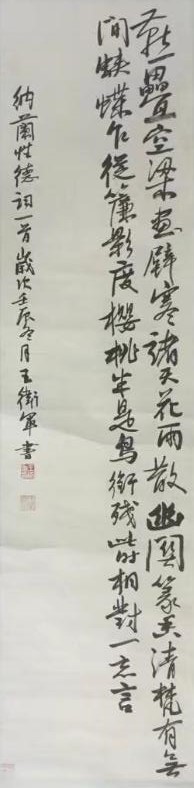 燕壘空梁畫壁寒諸天花雨散幽關篆香清梵有無
間蛺蝶乍從簾影度櫻桃半是鳥銜殘此時相對一忘言
納蘭性德詞一首歲次壬辰冬月王衛軍書